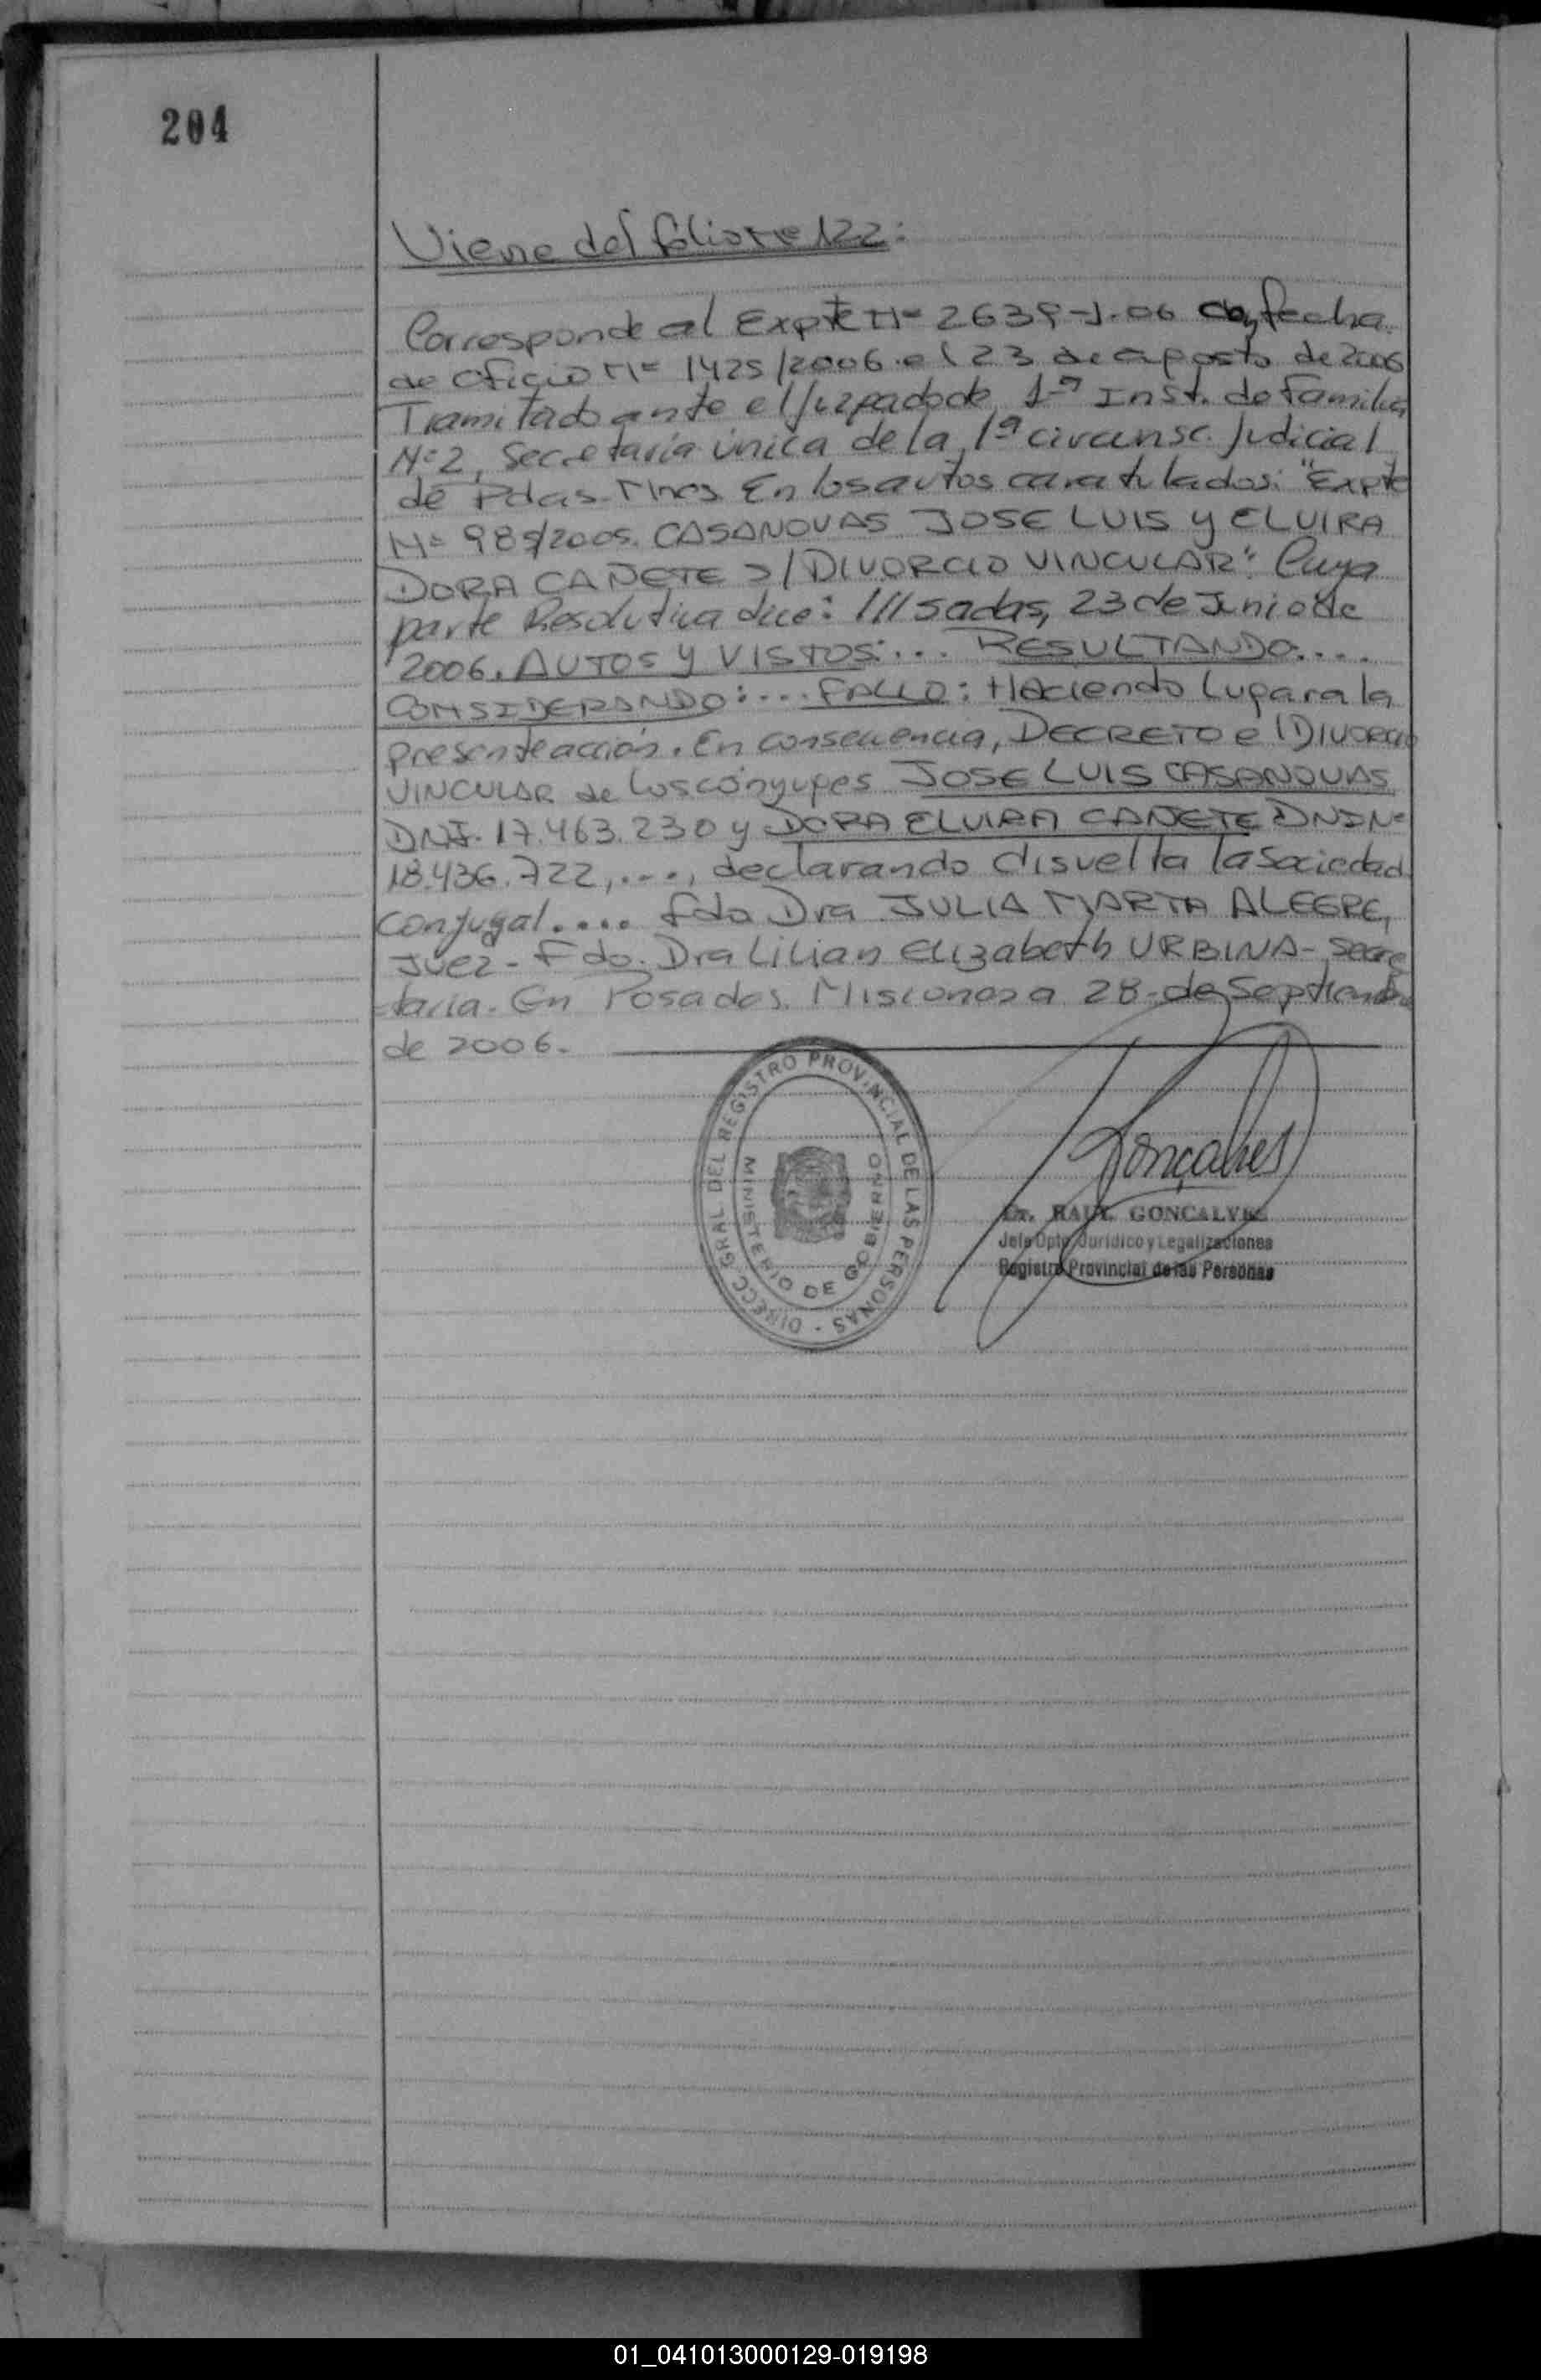 204
Viene del folio Nº 122:
Corresponde al Expte Nº 2639-J-06 con fecha
de oficio Nº 1425/2006 el 23 de agosto de 2006
Tramitado ante el Juzgado de 1ª Inst. de Familia
Nº 2, Secretaría única de la 1ª circunsc. Judicial
de Pdas-Mnes En los autos caratulados: "Expte
Nº 985/2005. CASANOVAS JOSE LUIS y ELVIRA
DORA CAÑETE S/DIVORCIO VINCULAR" Cuya
parte Resolutiva dice: ///sadas, 23 de Junio de
2006. AUTOS y VISTOS:... RESULTANDO....
CONSIDERANDO:... FALLO: Haciendo Lugar a la
presente acción. En consecuencia, DECRETO el DIVORCIO
VINCULAR de los cónyuges JOSE LUIS CASANOVAS
DNI. 17.463.230 y DORA ELVIRA CAÑETE DNI Nº
18.436.722,..., declarando disuelta la Sociedad
conjugal.... Fdo Dra JULIA MARTA ALEGRE,
Juez - Fdo. Dra Lilian Elizabeth URBINA - Secre
-taria. En Posadas Misiones a 28 de Septiembre
de 2006.
DIRECC. GRAL DEL REGISTRO PROVINCIAL DE LAS PERSONAS -
MINISTERIO DE GOBIERNO
Gonçalves
Dr. RAUL GONCALVES
Jefe Dpto. Jurídico y Legalizaciones
Registro Provincial de las Personas
01_041013000129-019198